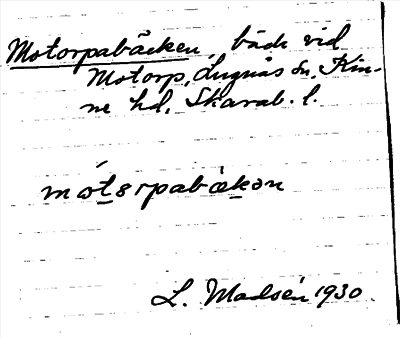 Motorpabäcken, bäck vid
Motorp, Lugnås sn, Kin-
ne hd, Skarab. l.
mòtərpabäkən
L. Madsén 1930.